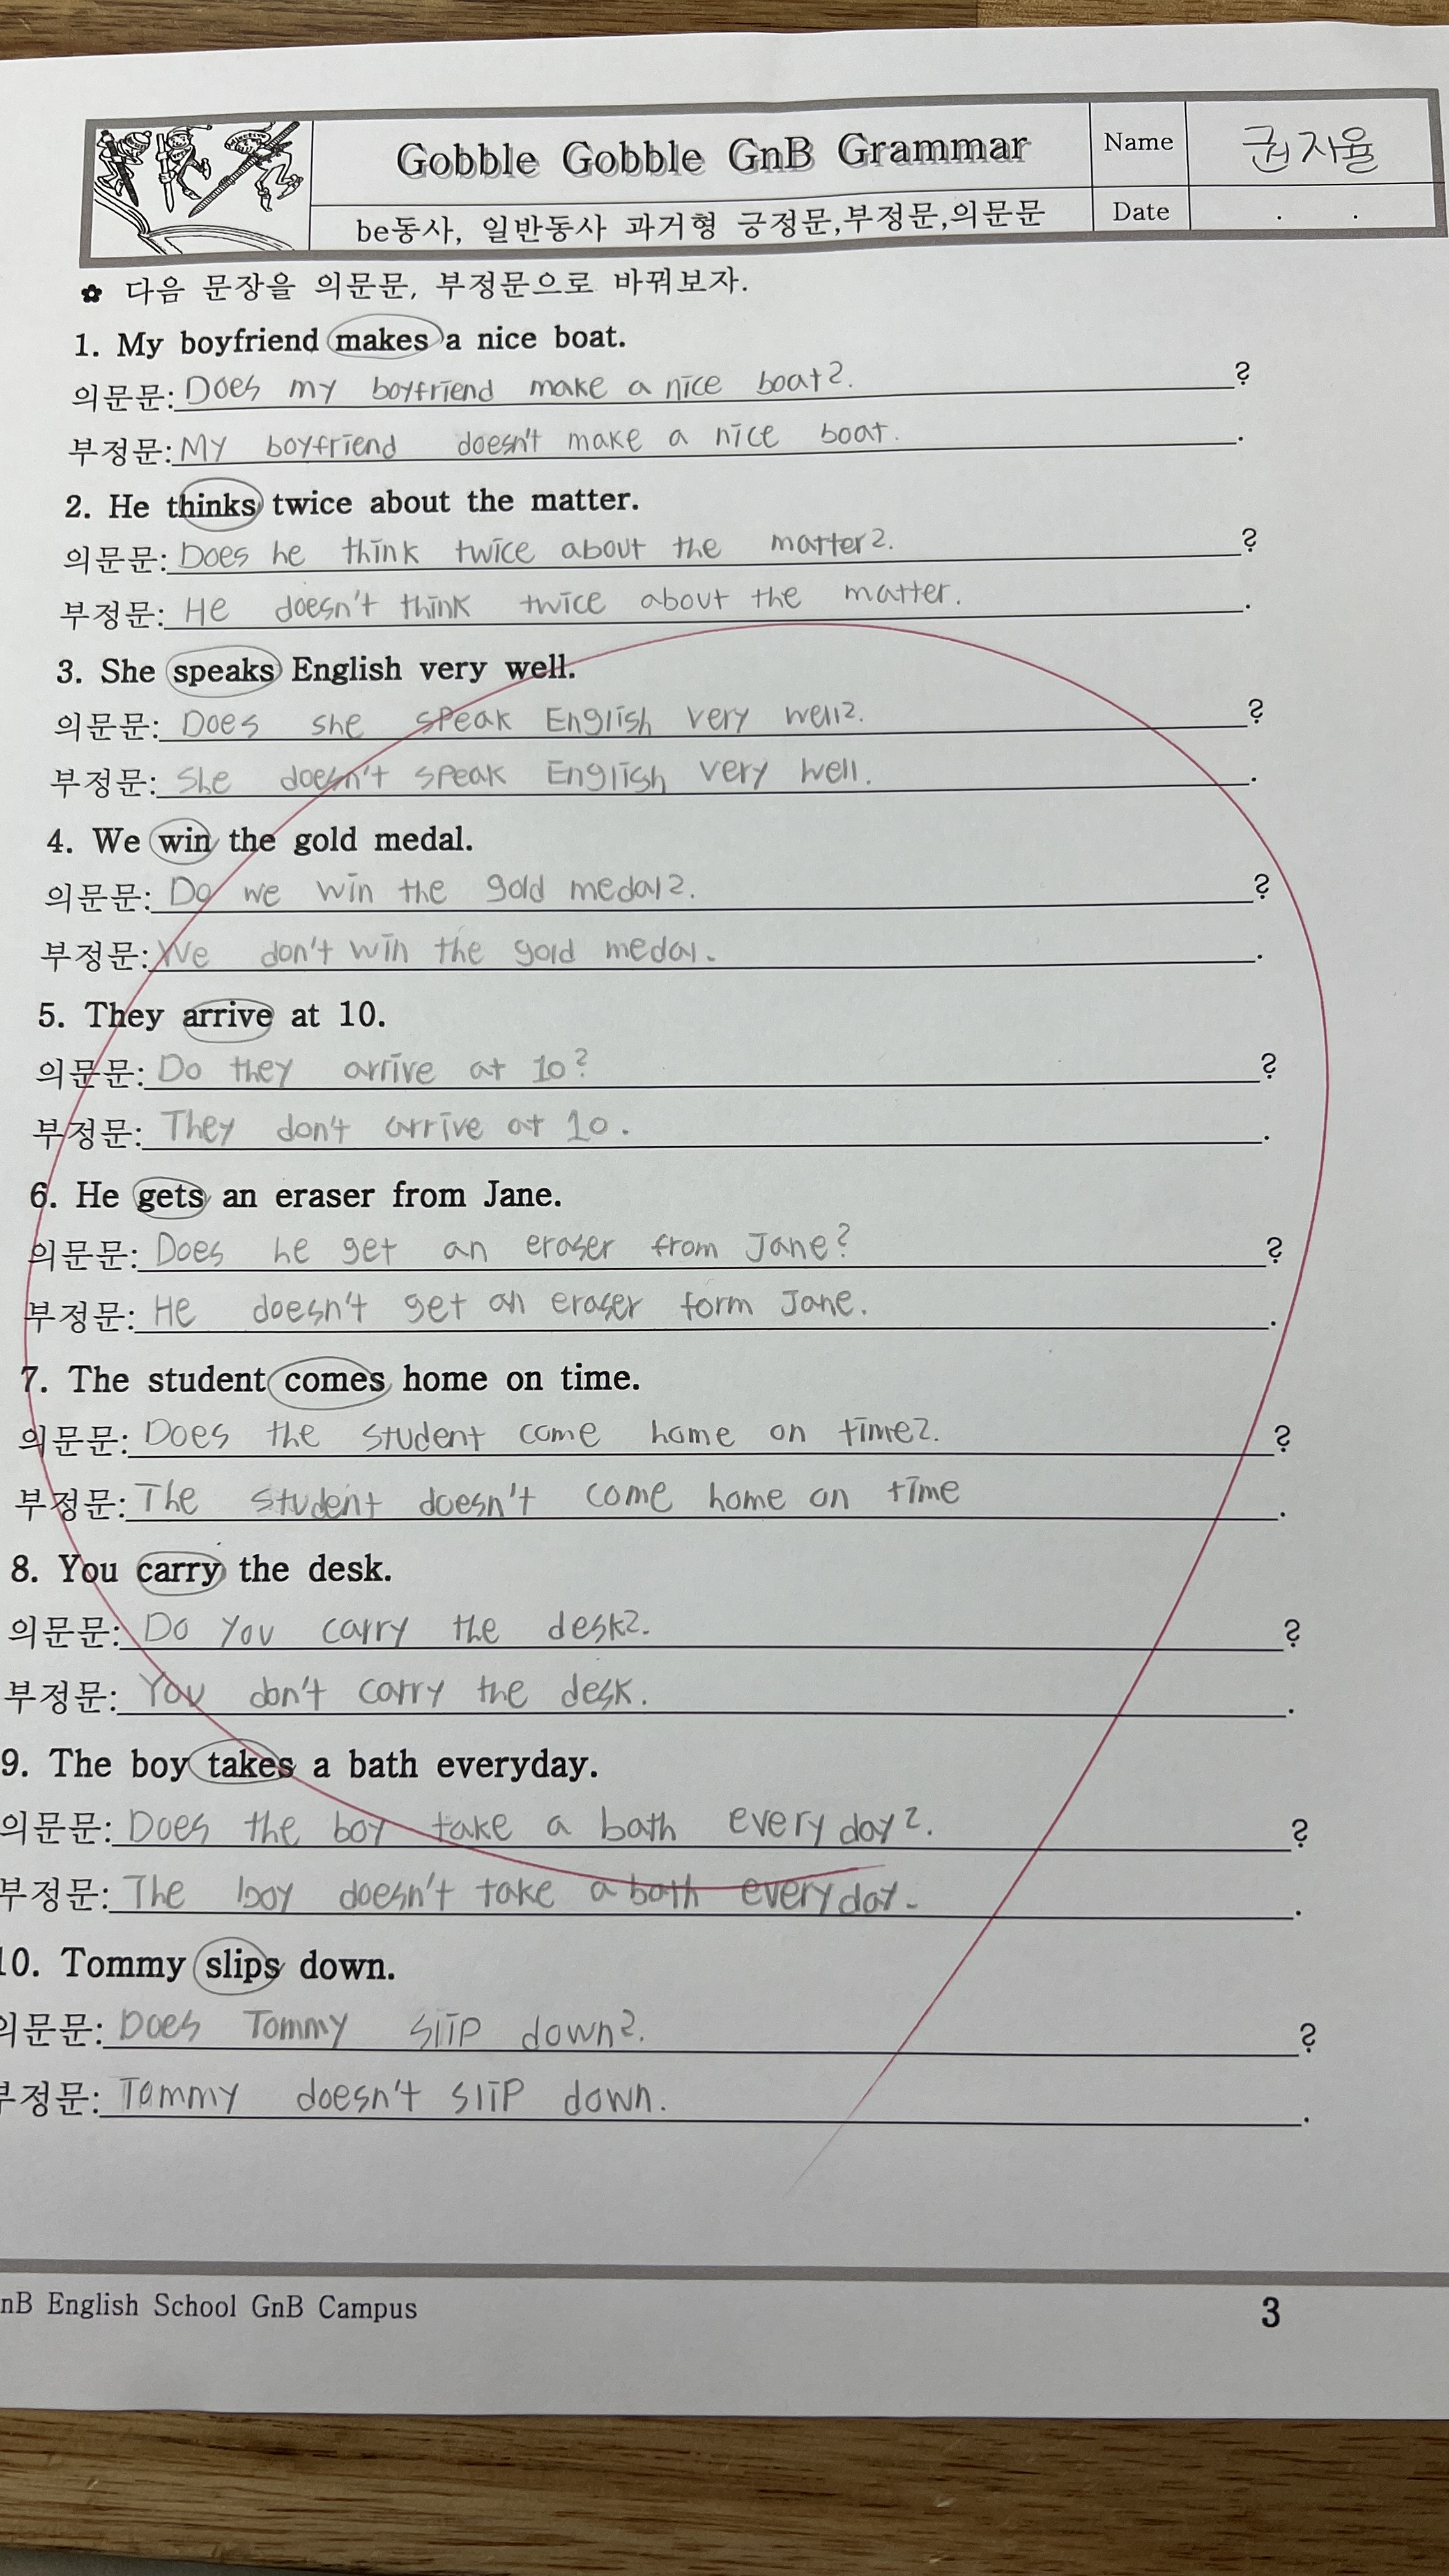 Gobble Gobble GnB Grammar
Name
권자율
be동사, 일반동사 과거형 긍정문,부정문,의문문
Date . .
✿ 다음 문장을 의문문, 부정문으로 바꿔보자.
1. My boyfriend makes a nice boat.
의문문: Does my boyfriend make a nice boat?. ?
부정문: My boyfriend doesn't make a nice boat. .
2. He thinks twice about the matter.
의문문: Does he think twice about the matter?. ?
부정문: He doesn't think twice about the matter. .
3. She speaks English very well.
의문문: Does she speak English very well?. ?
부정문: She doesn't speak English very well. .
4. We win the gold medal.
의문문: Do we win the gold medal?. ?
부정문: We don't win the gold medal. .
5. They arrive at 10.
의문문: Do they arrive at 10? ?
부정문: They don't arrive at 10. .
6. He gets an eraser from Jane.
의문문: Does he get an eraser from Jane? ?
부정문: He doesn't get an eraser form Jane. .
7. The student comes home on time.
의문문: Does the student come home on time?. ?
부정문: The student doesn't come home on time .
8. You carry the desk.
의문문: Do you carry the desk?. ?
부정문: You don't carry the desk. .
9. The boy takes a bath everyday.
의문문: Does the boy take a bath every day?. ?
부정문: The boy doesn't take a bath every day. .
10. Tommy slips down.
의문문: Does Tommy slip down?. ?
부정문: Tommy doesn't slip down. .
nB English School GnB Campus
3